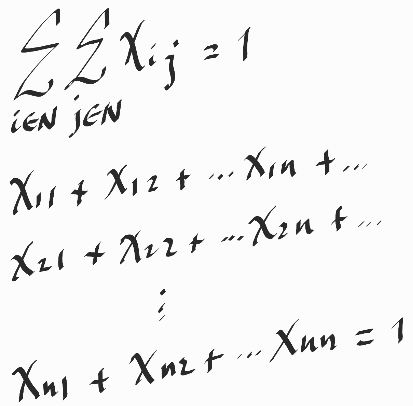 ∑ ∑ x_{ij} = 1
i∈N j∈N
x_{11} + x_{12} + ... x_{1n} + ...
x_{21} + x_{22} + ... x_{2n} + ...
⋮
x_{n1} + x_{n2} + ... x_{nn} = 1